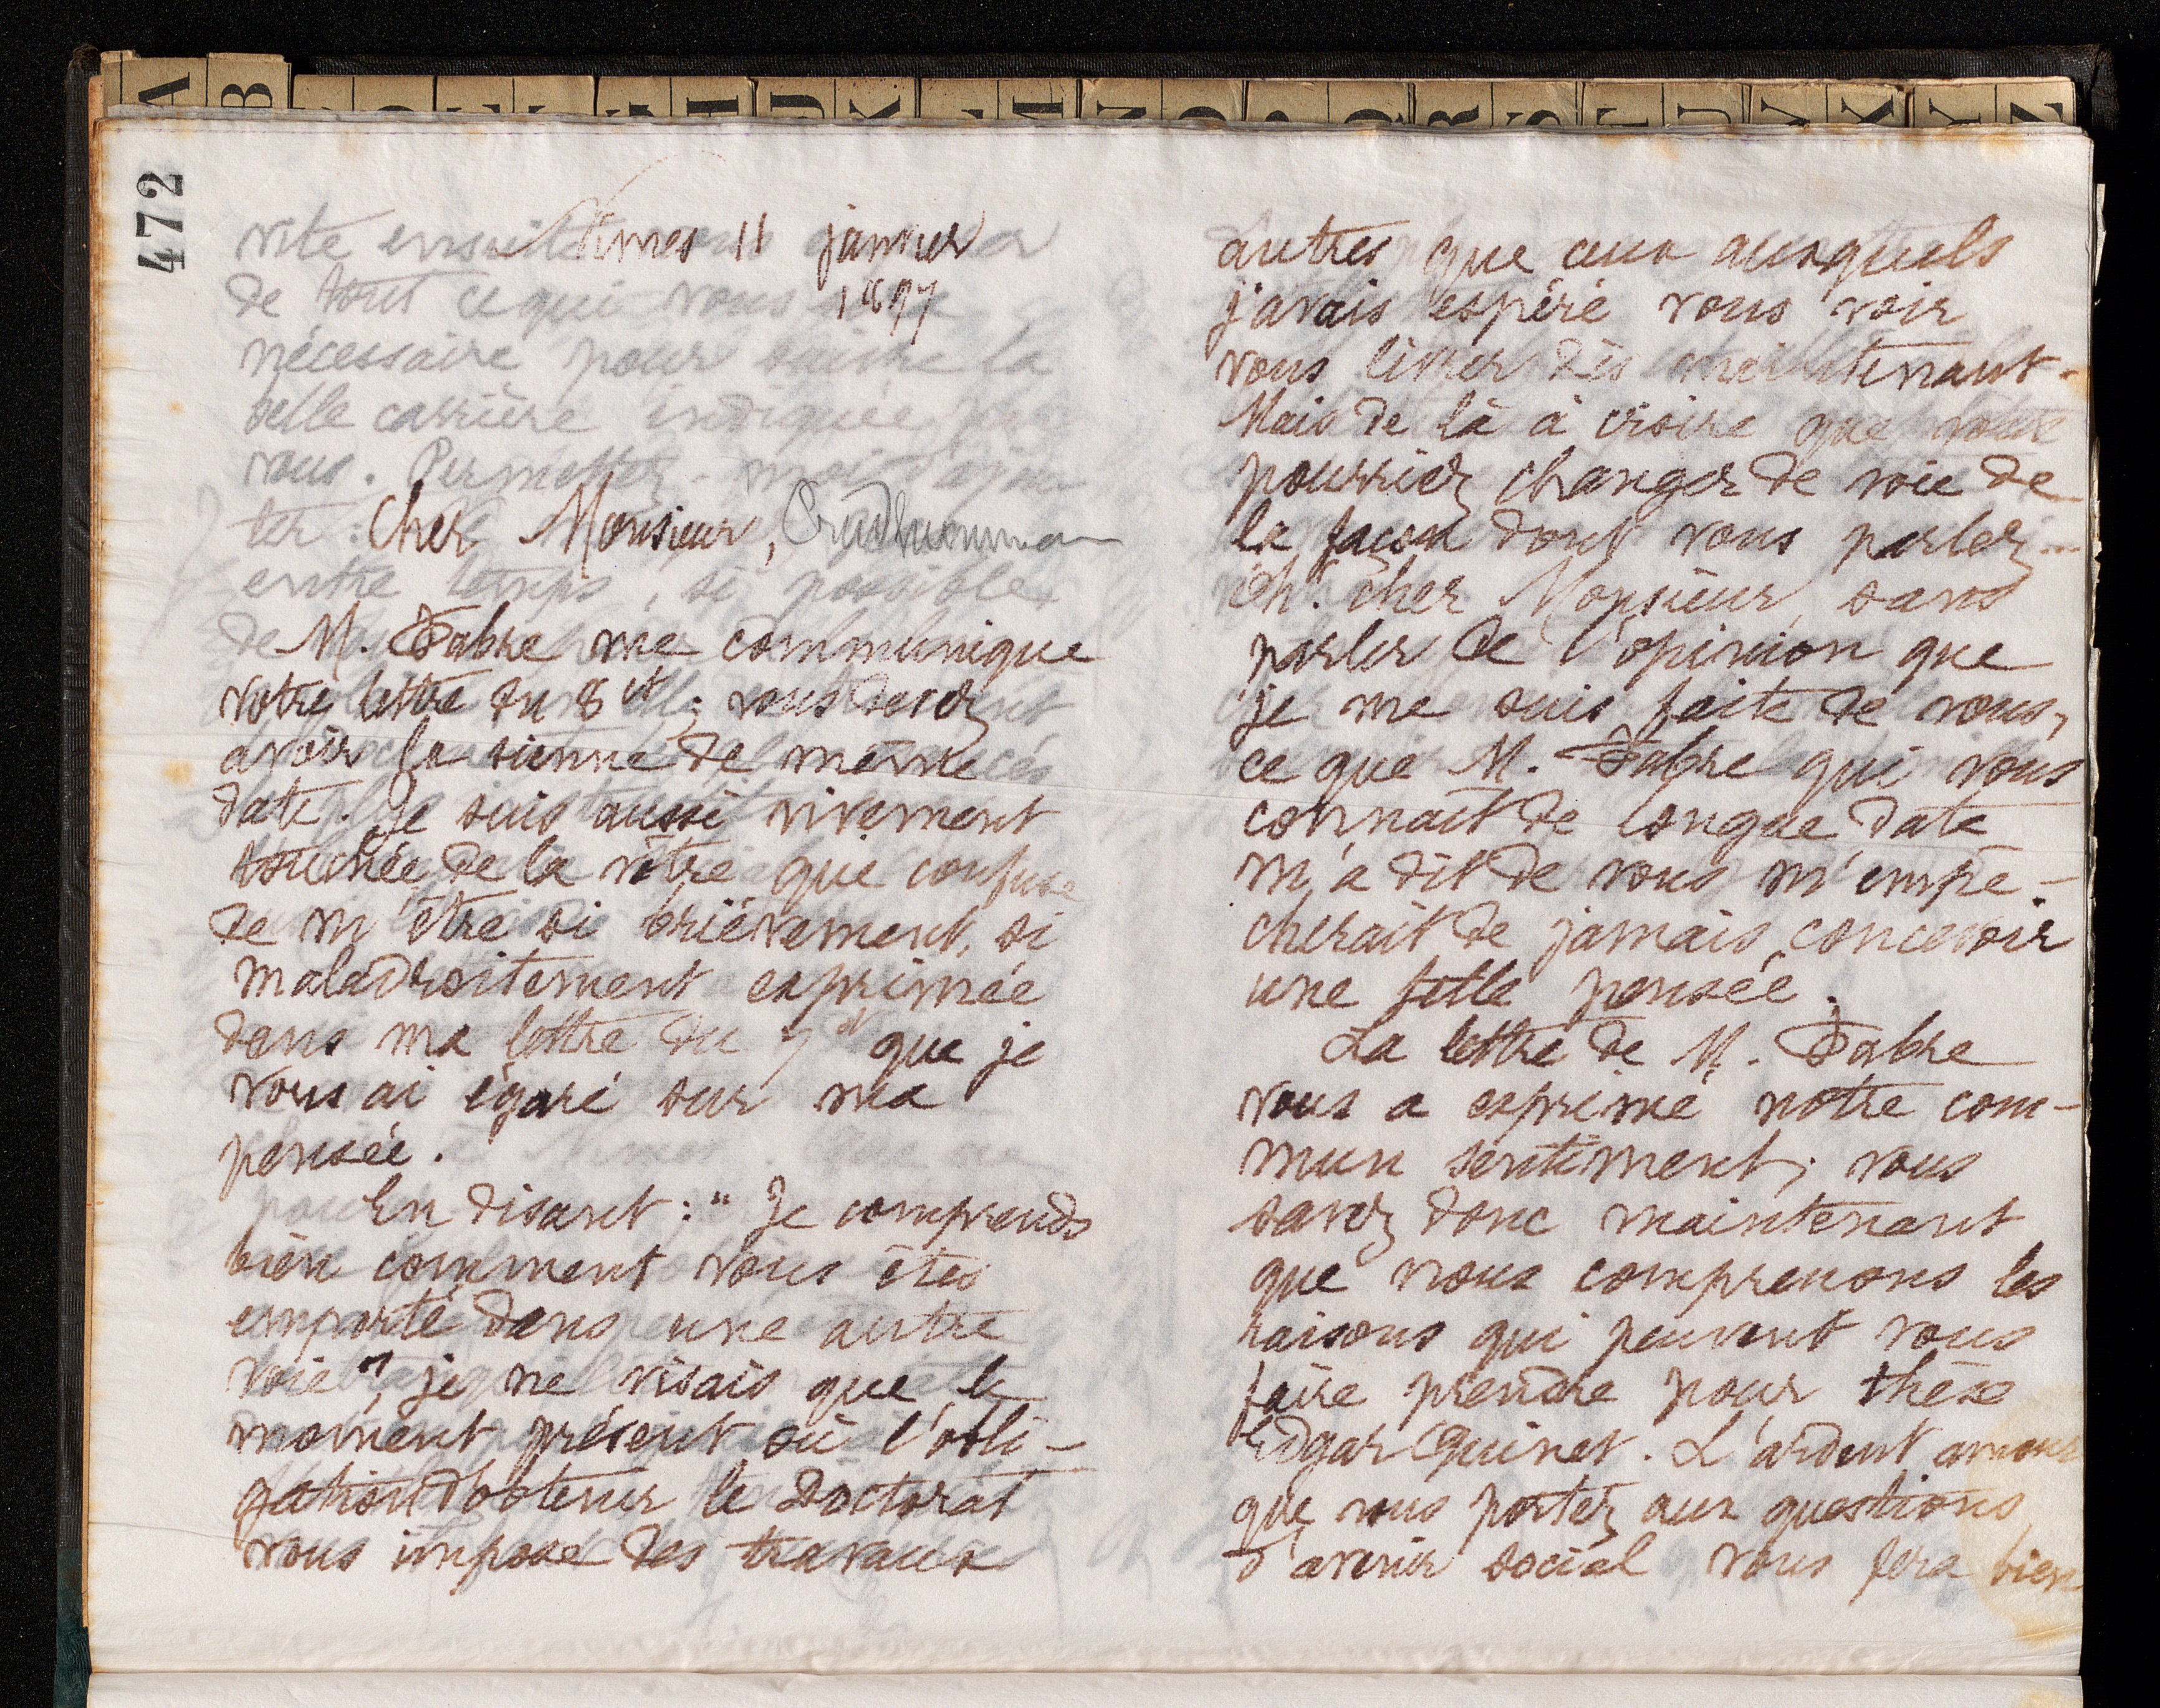 A B K L M N O P Q R S T U V X Y Z
472
Nimes 11 janvier
1897
Cher Monsieur, Prudhommeaux
M. Fabre me communique
votre lettre du 8 ct; vous devez
avoir la sienne de même
date. Je suis aussi vivement
touchée de la vôtre que confuse
de m'être si brièvement, si
maladroitement exprimée
dans ma lettre du 7 ct que je
vous ai égaré sur ma
pensée.
En disant : " Je comprends
bien comment vous êtes
emporté dans une autre
voie ", je ne visais que le
moment présent où l'obli-
gation d'obtenir le Doctorat
vous impose des travaux
autres que ceux auxquels
j'avais espéré vous voir
vous livrer dès maintenant.
Mais de là à croire que vous
pourriez changer de voie de
la façon dont vous parlez...
Oh! cher Monsieur, sans
parler de l'opinion que
je me suis faite de vous,
ce que M. Fabre qui vous
connaît de longue date
m'a dit de vous m'empê-
cherait de jamais concevoir
une telle pensée.
La lettre de M. Fabre
vous a exprimé notre com-
mun sentiment; vous
savez donc maintenant
que nous comprenons les
raisons qui peuvent vous
faire prendre pour thèse
Edgar Quinet. L'ardent amour
que vous portez aux questions
d'avenir social vous fera bien